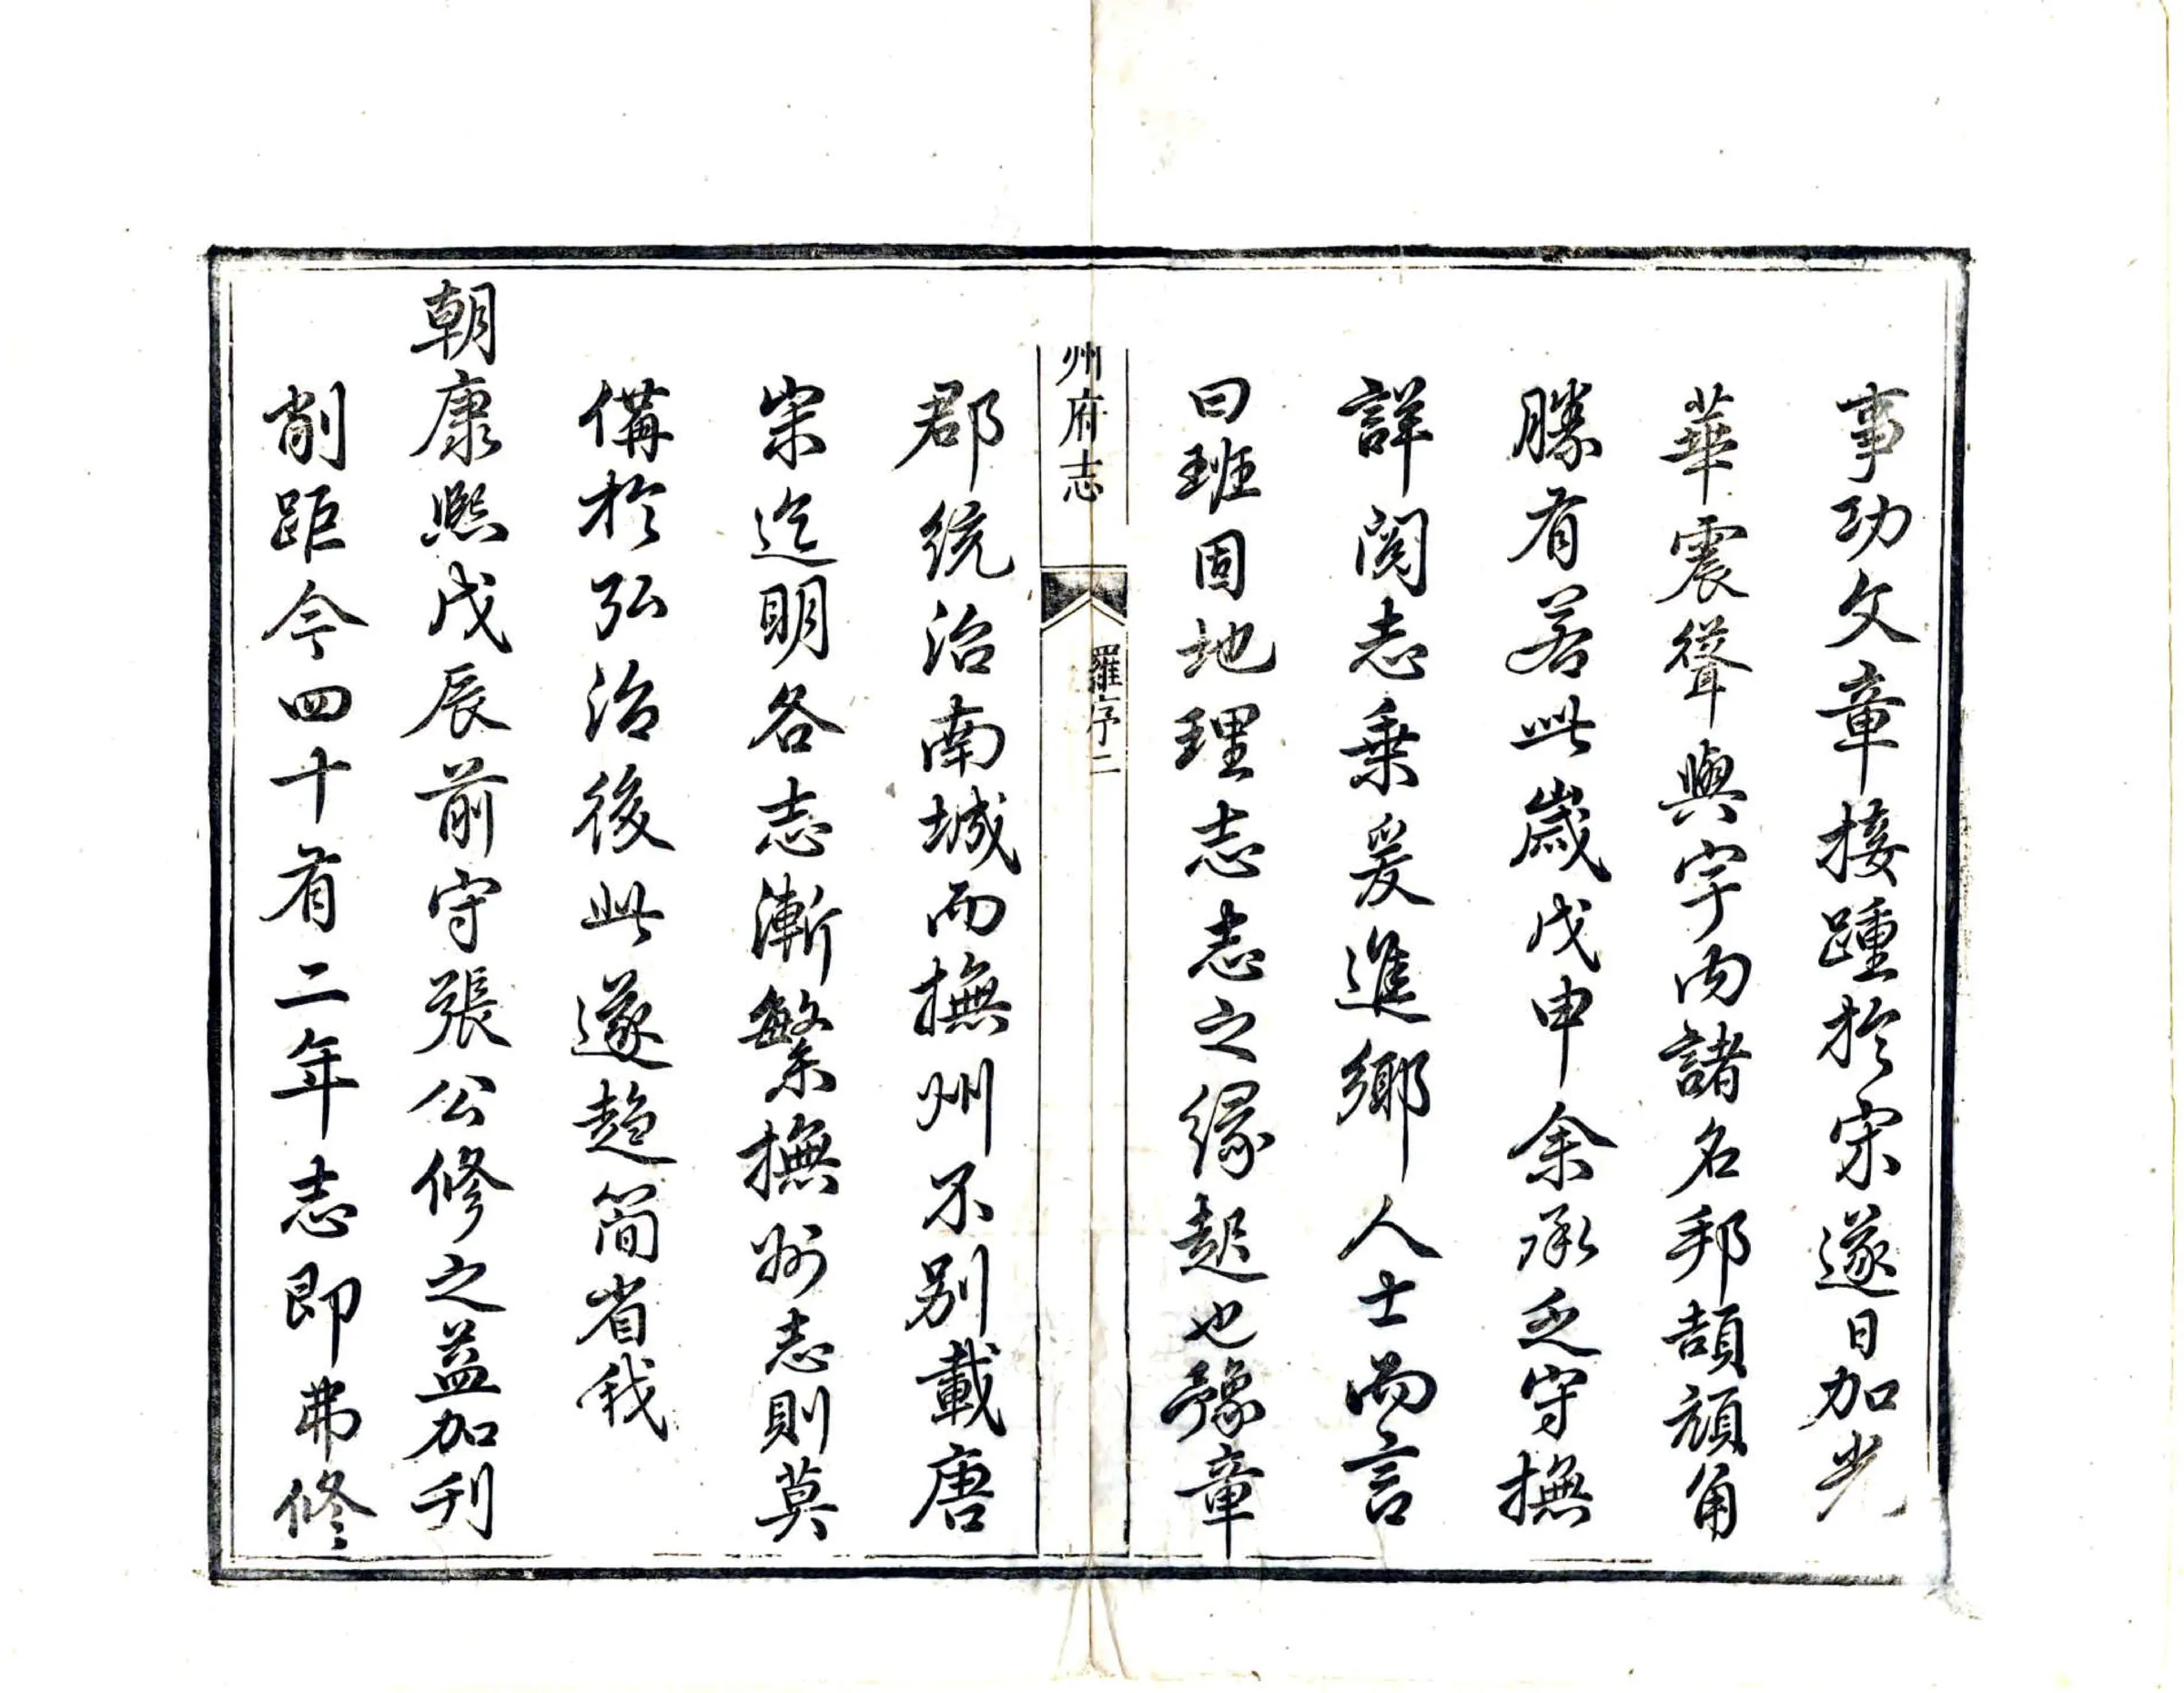 事功文章接踵於宋遂日加光
華震聳與宇內諸名邦頡頏角
勝有若此歲戊申余承乏守撫
詳閱志乗爰進鄉人士而言
曰班固地理志志之緣起也豫章
州府志
羅序二
郡統治南城而撫州不别載唐
宋迄明各志漸繁撫州志則莫
備於弘治後此遂趋簡省我
朝康熙戊辰前守張公修之益加刋
削距今四十有二年志即弗修